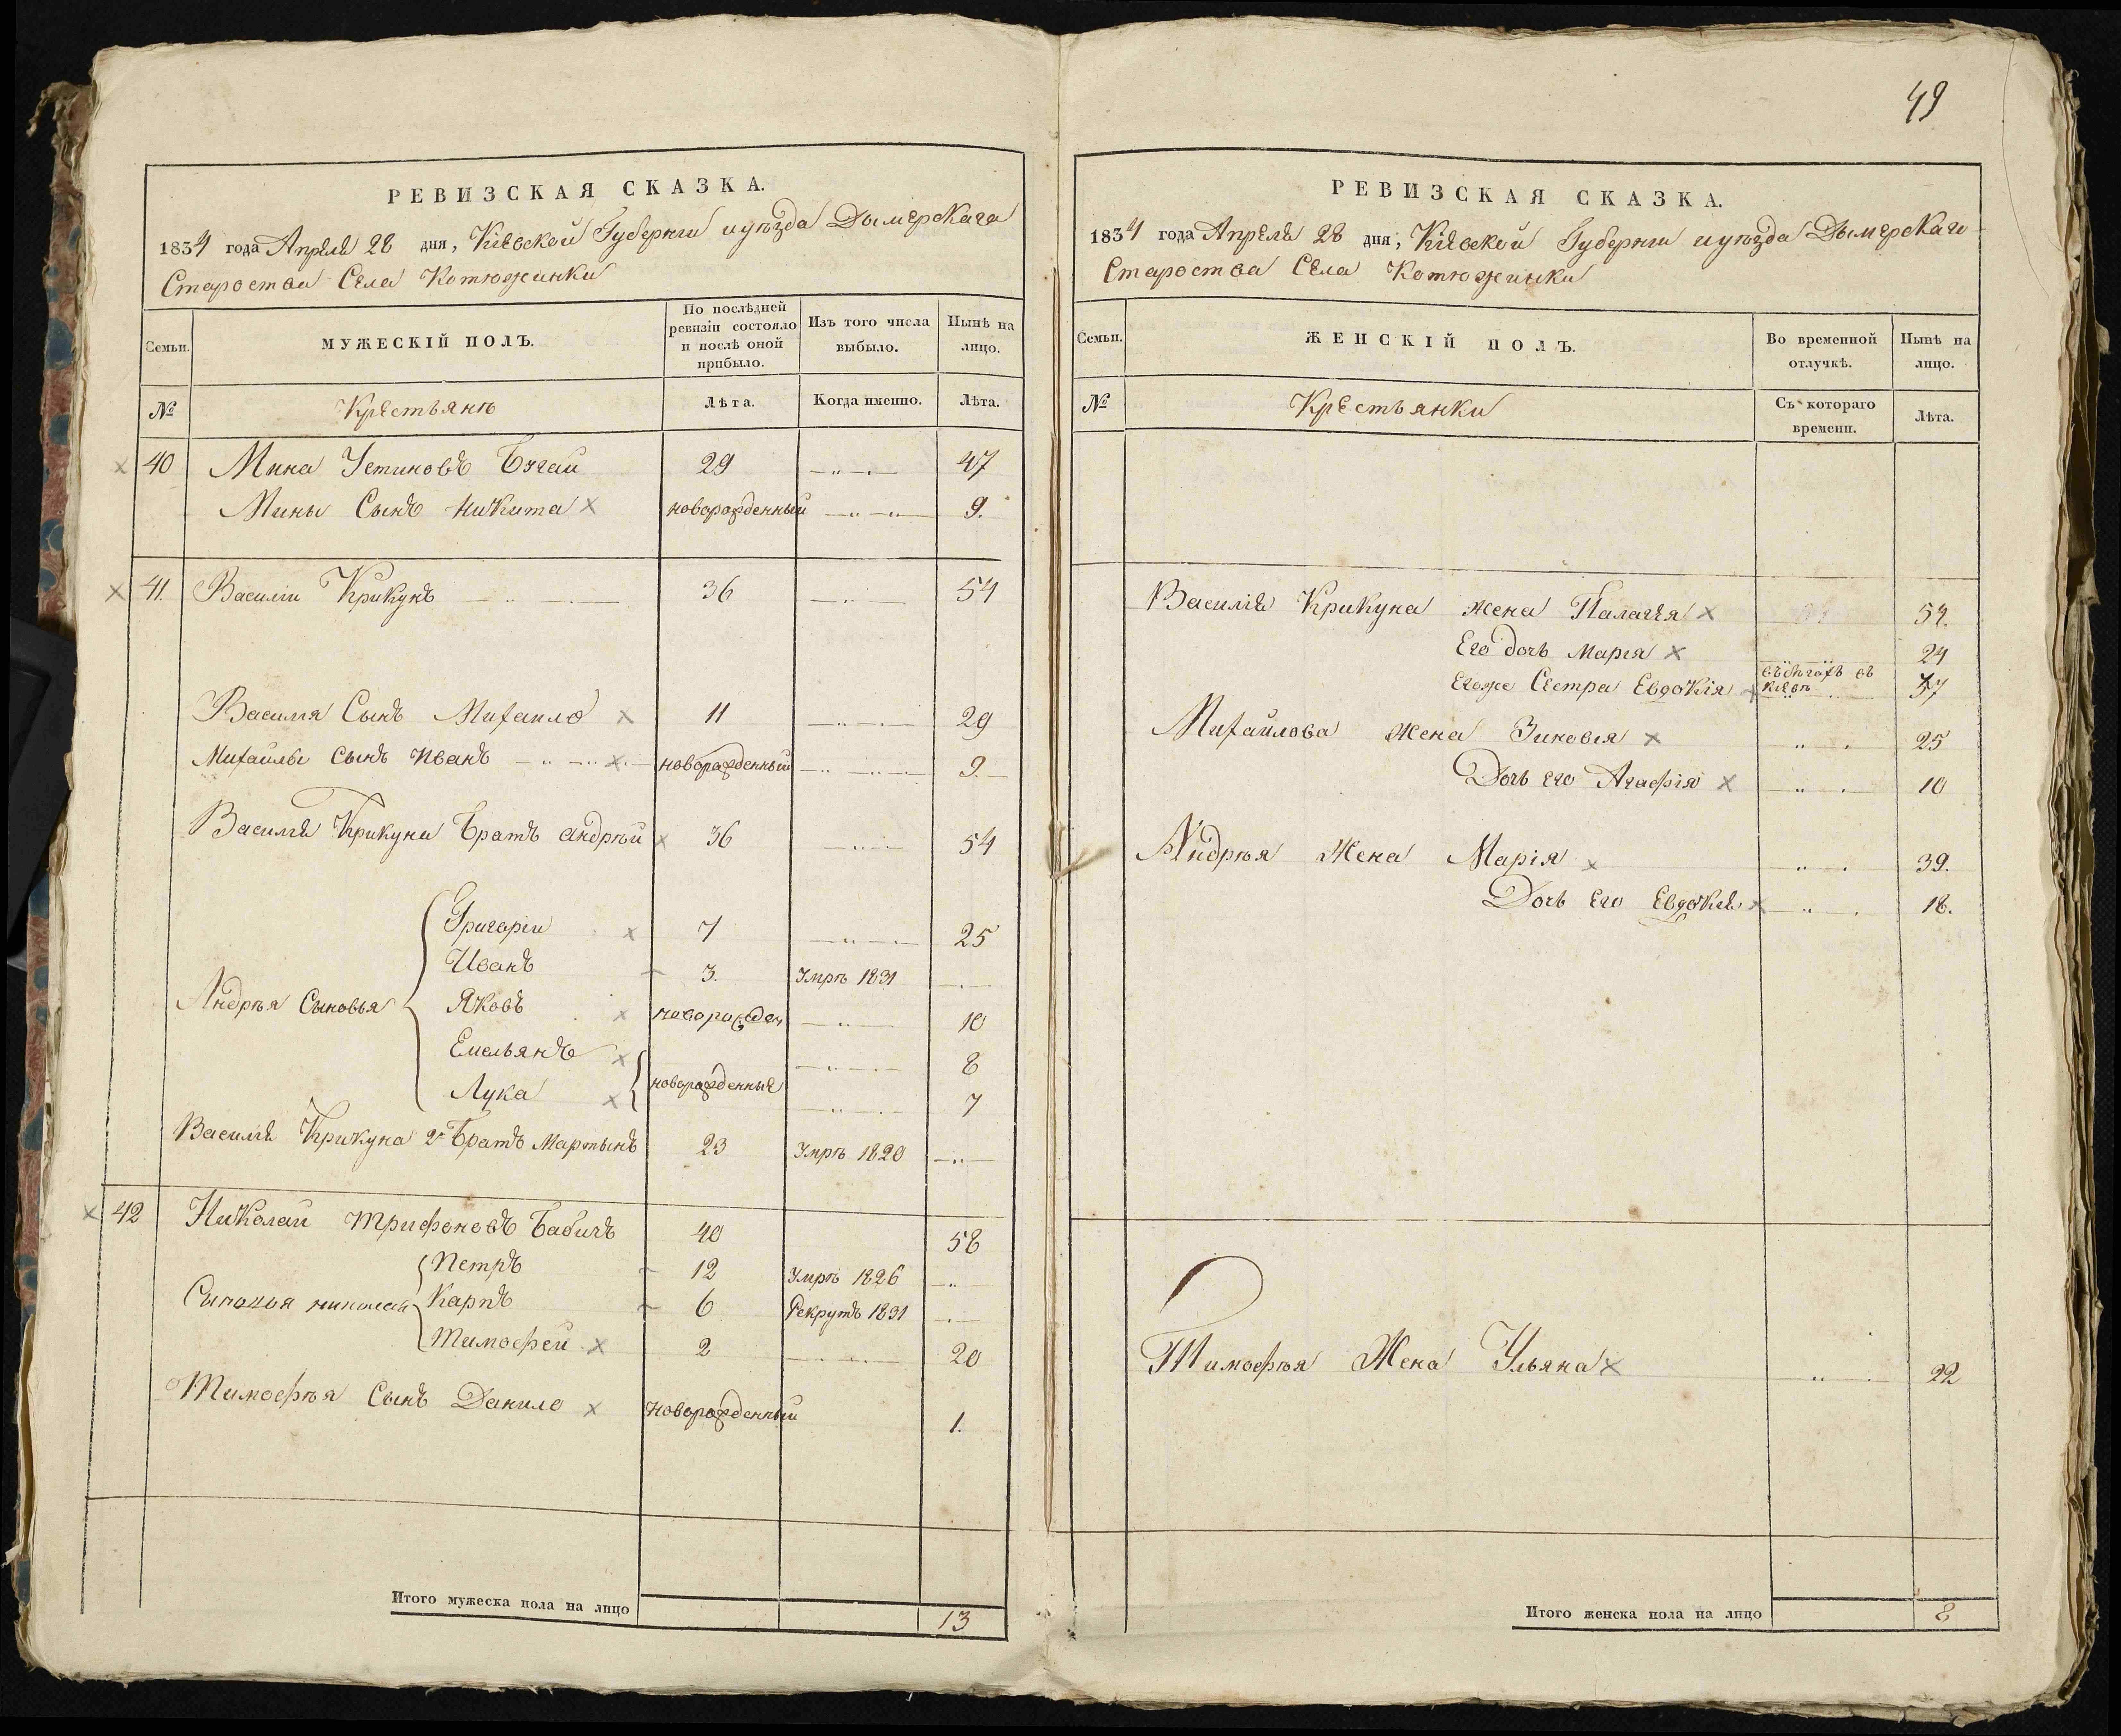 РЕВИЗСКАЯ СКАЗКА.
1834 года Апреля 28 дня, Кіевской Губерніи и уѣзда Дымерскаго
Староства Села Котюжинки
Семьи. МУЖЕСКІЙ ПОЛЪ. По послѣдней ревизіи состояло и послѣ оной прибыло. Изъ того числа выбыло. Нынѣ на лицо.
№ Крестьяне Лѣта. Когда именно. Лѣта.
40 Мина Устиновъ Бугай 29 47
Мины Сынъ Никита новорожденный 9.
41. Василій Крикунъ 36 54
Василія Сынъ Михайло 11 29
Михайлы сынъ Иванъ новорожденный 9
Василія Крикуна Братъ Андрѣй 36 54
Андрѣя Сыновья
Григорій 7 25
Иванъ 3. Умре 1831
Яковъ новорожден 10
Емельянъ новорожденные 8
Лука 7
Василія Крикуна 2й Братъ Мартынъ 23 Умре 1820
42 Николай Трифоновъ Бабичъ 40 58
Сыновья Николая
Петръ 12 Умре 1826
Карпъ 6 Рекрутъ 1831
Тимофей 2 20
Тимофѣя Сынъ Данило новорожденный 1.
Итого мужеска пола на лицо 13
49
РЕВИЗСКАЯ СКАЗКА.
1834 года Апреля 28 дня, Кіевской Губерніи и уѣзда Дымерскаго
Староства Села Котюжинки
Семьи. ЖЕНСКІЙ ПОЛЪ. Во временной отлучкѣ. Нынѣ на лицо.
№ Крестьянки Съ котораго времени. Лѣта.
Василія Крикуна жена Палагея 54.
Его дочь Марія 24
Егоже Сестра Евдокія 37
Михайлова Жена Зиновія 25
Дочь его Агафія 10
Андрѣя Жена Марія 39.
Дочь Его Евдокія 18.
Тимофѣя Жена Ульяна 22
Итого женска пола на лицо 8